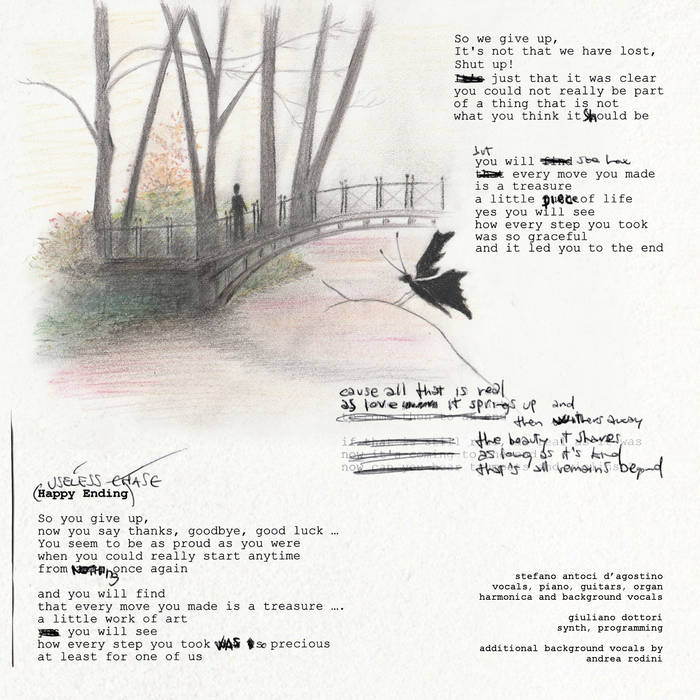 So we give up,
It's not that we have lost,
Shut up!
It's just that it was clear
you could not really be part
of a thing that is not
what you think it should be
but
you will find see how
that every move you made
is a treasure
a little piece of life
yes you will see
how every step you took
was so graceful
and it led you to the end
cause all that is real
as love it springs up and
then withers away
the beauty it shares
as long as it's kind
that's all remains beyond
USELESS CHASE
(Happy Ending)
So you give up,
now you say thanks, goodbye, good luck …
You seem to be as proud as you were
when you could really start anytime
from nothing once again
and you will find
that every move you made is a treasure ….
a little work of art
yes you will see
how every step you took WAS so precious
at least for one of us
stefano antoci d'agostino
vocals, piano, guitars, organ
harmonica and background vocals
giuliano dottori
synth, programming
additional background vocals by
andrea rodini